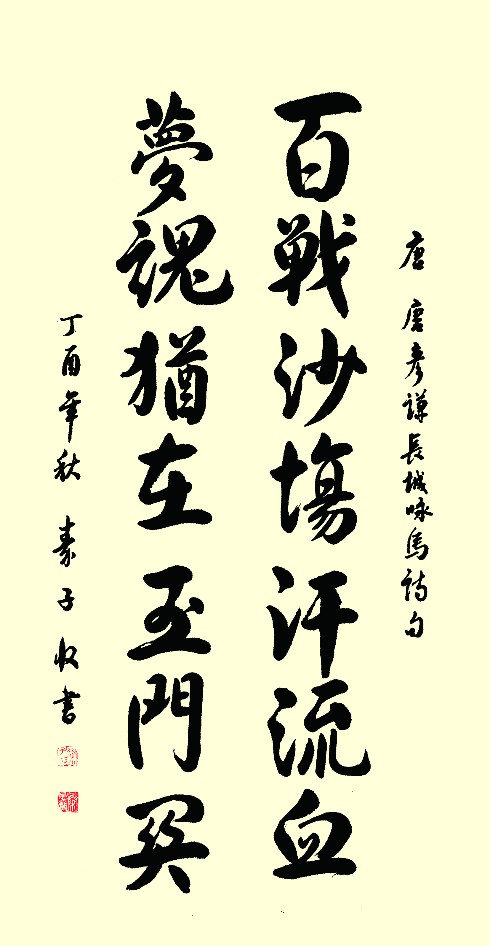 唐 唐彦謙長城咏馬詩句
百戰沙場汗流血
夢魂猶在玉門関
丁酉年秋 素子收書